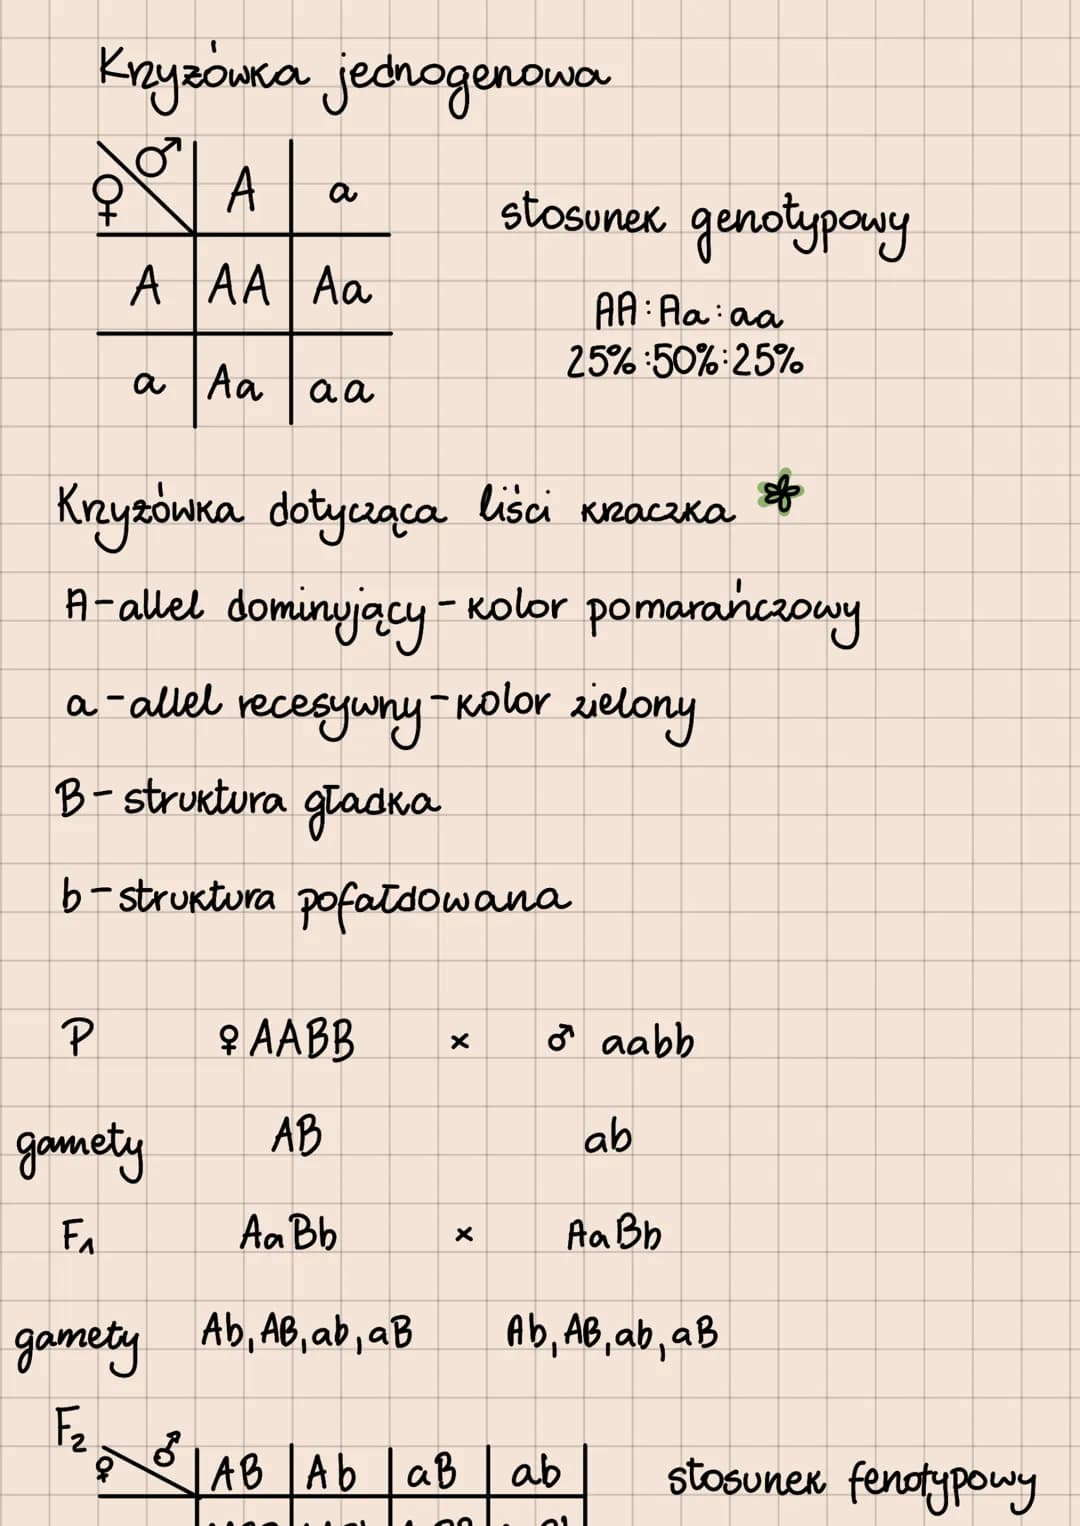 Krzyżówka jednogenowa
♀ ♂ A a
A AA Aa
a Aa aa
stosunek genotypowy
AA:Aa:aa
25%:50%:25%
Krzyżówka dotycząca liści kraczka
A-allel dominujący-kolor pomarańczowy
a-allel recesywny-kolor zielony
B-struktura gładka
b-struktura pofałdowana
P ♀AABB × ♂ aabb
gamety AB ab
F1 AaBb × AaBb
gamety Ab, AB, ab, aB Ab, AB, ab, aB
F2
♀ ♂ AB Ab aB ab
stosunek fenotypowy